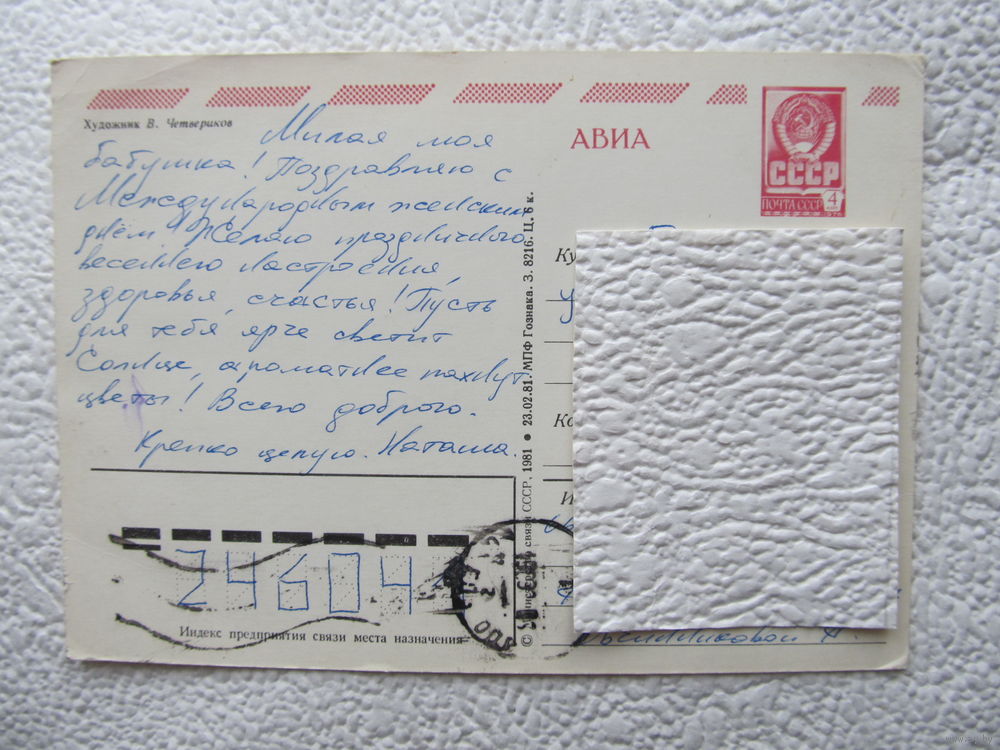 Художник В. Четвериков
Милая моя
бабушка! Поздравляю с
Международным женским
днём! Желаю праздничного
весеннего настроения,
здоровья, счастья! Пусть
для тебя ярче светит
Солнце, ароматнее пахнут
цветы! Всего доброго.
Крепко целую. Наташа.
АВИА
СССР
ПОЧТА СССР
4
коп
1978
Ку
у
Ко
© Министерство связи СССР, 1981 ● 23.02.81. МПФ Гознака. З. 8216. Ц. 6 к.
Индекс предприятия связи места назначения